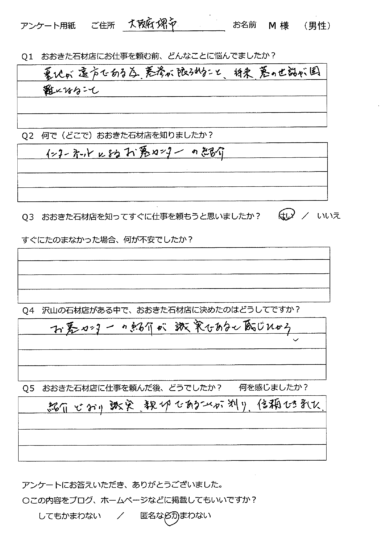 アンケート用紙 ご住所 大阪府堺市 お名前 M 様 （男性）
Q1 おおきた石材店にお仕事を頼む前、どんなことに悩んでましたか？
墓地が遠方である為、墓参が限られること、将来、墓の世話が困
難になること
Q2 何で（どこで）おおきた石材店を知りましたか？
インターネットによるお墓センターの紹介
Q3 おおきた石材店を知ってすぐに仕事を頼もうと思いましたか？ はい ／ いいえ
すぐにたのまなかった場合、何が不安でしたか？
Q4 沢山の石材店がある中で、おおきた石材店に決めたのはどうしてですか？
お墓センターの紹介が誠実であると感じたから
Q5 おおきた石材店に仕事を頼んだ後、どうでしたか？ 何を感じましたか？
紹介どおり誠実、親切であることが判り、信頼できました。
アンケートにお答えいただき、ありがとうございました。
〇この内容をブログ、ホームページなどに掲載してもいいですか？
してもかまわない ／ 匿名ならかまわない